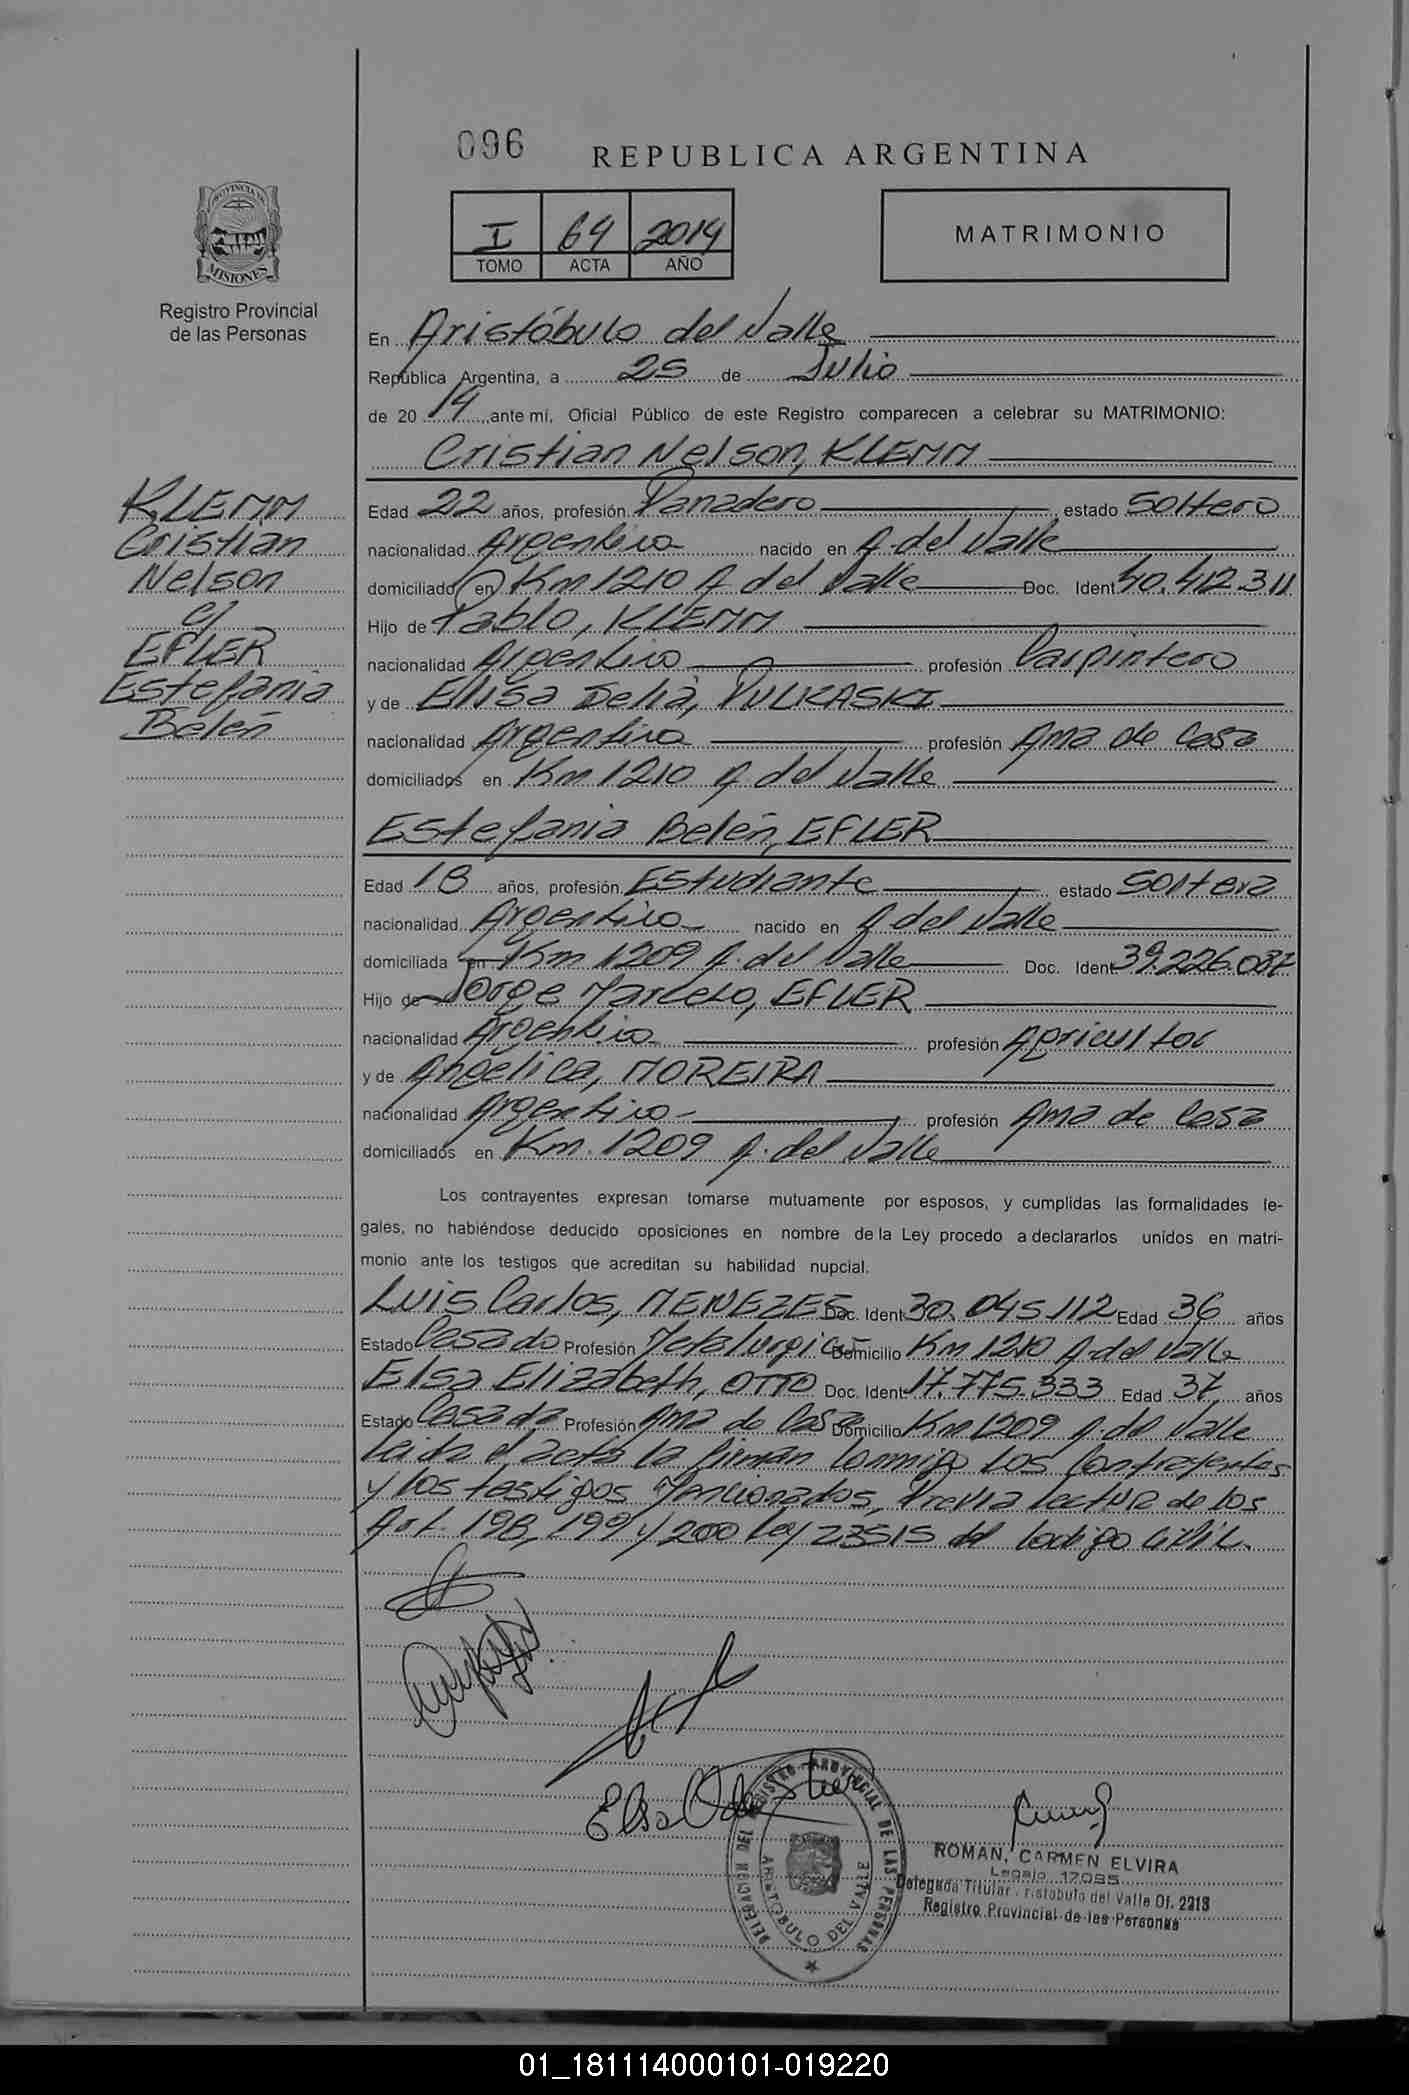 096
REPUBLICA ARGENTINA
PROVINCIA DE
MISIONES
Registro Provincial
de las Personas
I 64 2014
TOMO ACTA AÑO
MATRIMONIO
En Aristóbulo del Valle
República Argentina, a 25 de Julio
de 2014 ante mí, Oficial Público de este Registro comparecen a celebrar su MATRIMONIO:
Cristian Nelson, KLEMM
KLEMM
Cristian
Nelson
c/
EFLER
Estefania
Belén
Edad 22 años, profesión Panadero estado Soltero
nacionalidad Argentina nacido en A. del Valle
domiciliado en Km 1210 A del Valle Doc. Ident 40.412.311
Hijo de Pablo, KLEMM
nacionalidad Argentino profesión Carpintero
y de Elisa Delia, PULKASKI
nacionalidad Argentina profesión Ama de Casa
domiciliados en Km 1210 A. del Valle
Estefania Belén, EFLER
Edad 18 años, profesión Estudiante estado Soltera
nacionalidad Argentina nacido en A del Valle
domiciliada en Km 1209 A. del Valle Doc. Ident 39.226.037
Hijo de Jorge Marcelo, EFLER
nacionalidad Argentino profesión Agricultor
y de Angelica, MOREIRA
nacionalidad Argentina profesión Ama de Casa
domiciliados en Km. 1209 A. del Valle
Los contrayentes expresan tomarse mutuamente por esposos, y cumplidas las formalidades le-
gales, no habiéndose deducido oposiciones en nombre de la Ley procedo a declararlos unidos en matri-
monio ante los testigos que acreditan su habilidad nupcial.
Luis Carlos, MENEZES Doc. Ident 30.045.112 Edad 36 años
Estado Casado Profesión Metalurgico Domicilio Km 1210 A. del Valle
Elsa Elizabeth, OTTO Doc. Ident 17.775.333 Edad 37 años
Estado Casada Profesión Ama de Casa Domicilio Km 1209 A. del Valle
Leida el acta la firman conmigo los Contrayentes
y los testigos Mencionados, Previa lectura de los
Art. 198, 199 y 200 Ley 23515 del Codigo Civil.
Elsa
DELEGACION DEL REGISTRO PROVINCIAL DE LAS PERSONAS
ARISTOBULO DEL VALLE
ROMAN, CARMEN ELVIRA
Legajo 17095
Delegada Titular Aristobulo del Valle Of. 2213
Registro Provincial de las Personas
01_181114000101-019220